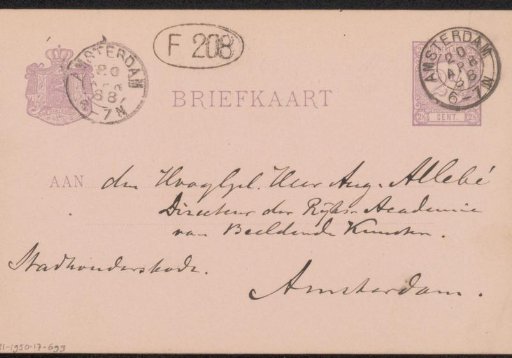 F 208
AMSTERDAM 20 88 6-7N
AMSTERDAM 20 88 6-7N
BRIEFKAART
CENT
AAN den Hooggel. Heer Aug. Allebé
Directeur der Rijks-Academie
van Beeldende Kunsten.
Stadhouderskade.
Amsterdam.
RP-1950-17-693